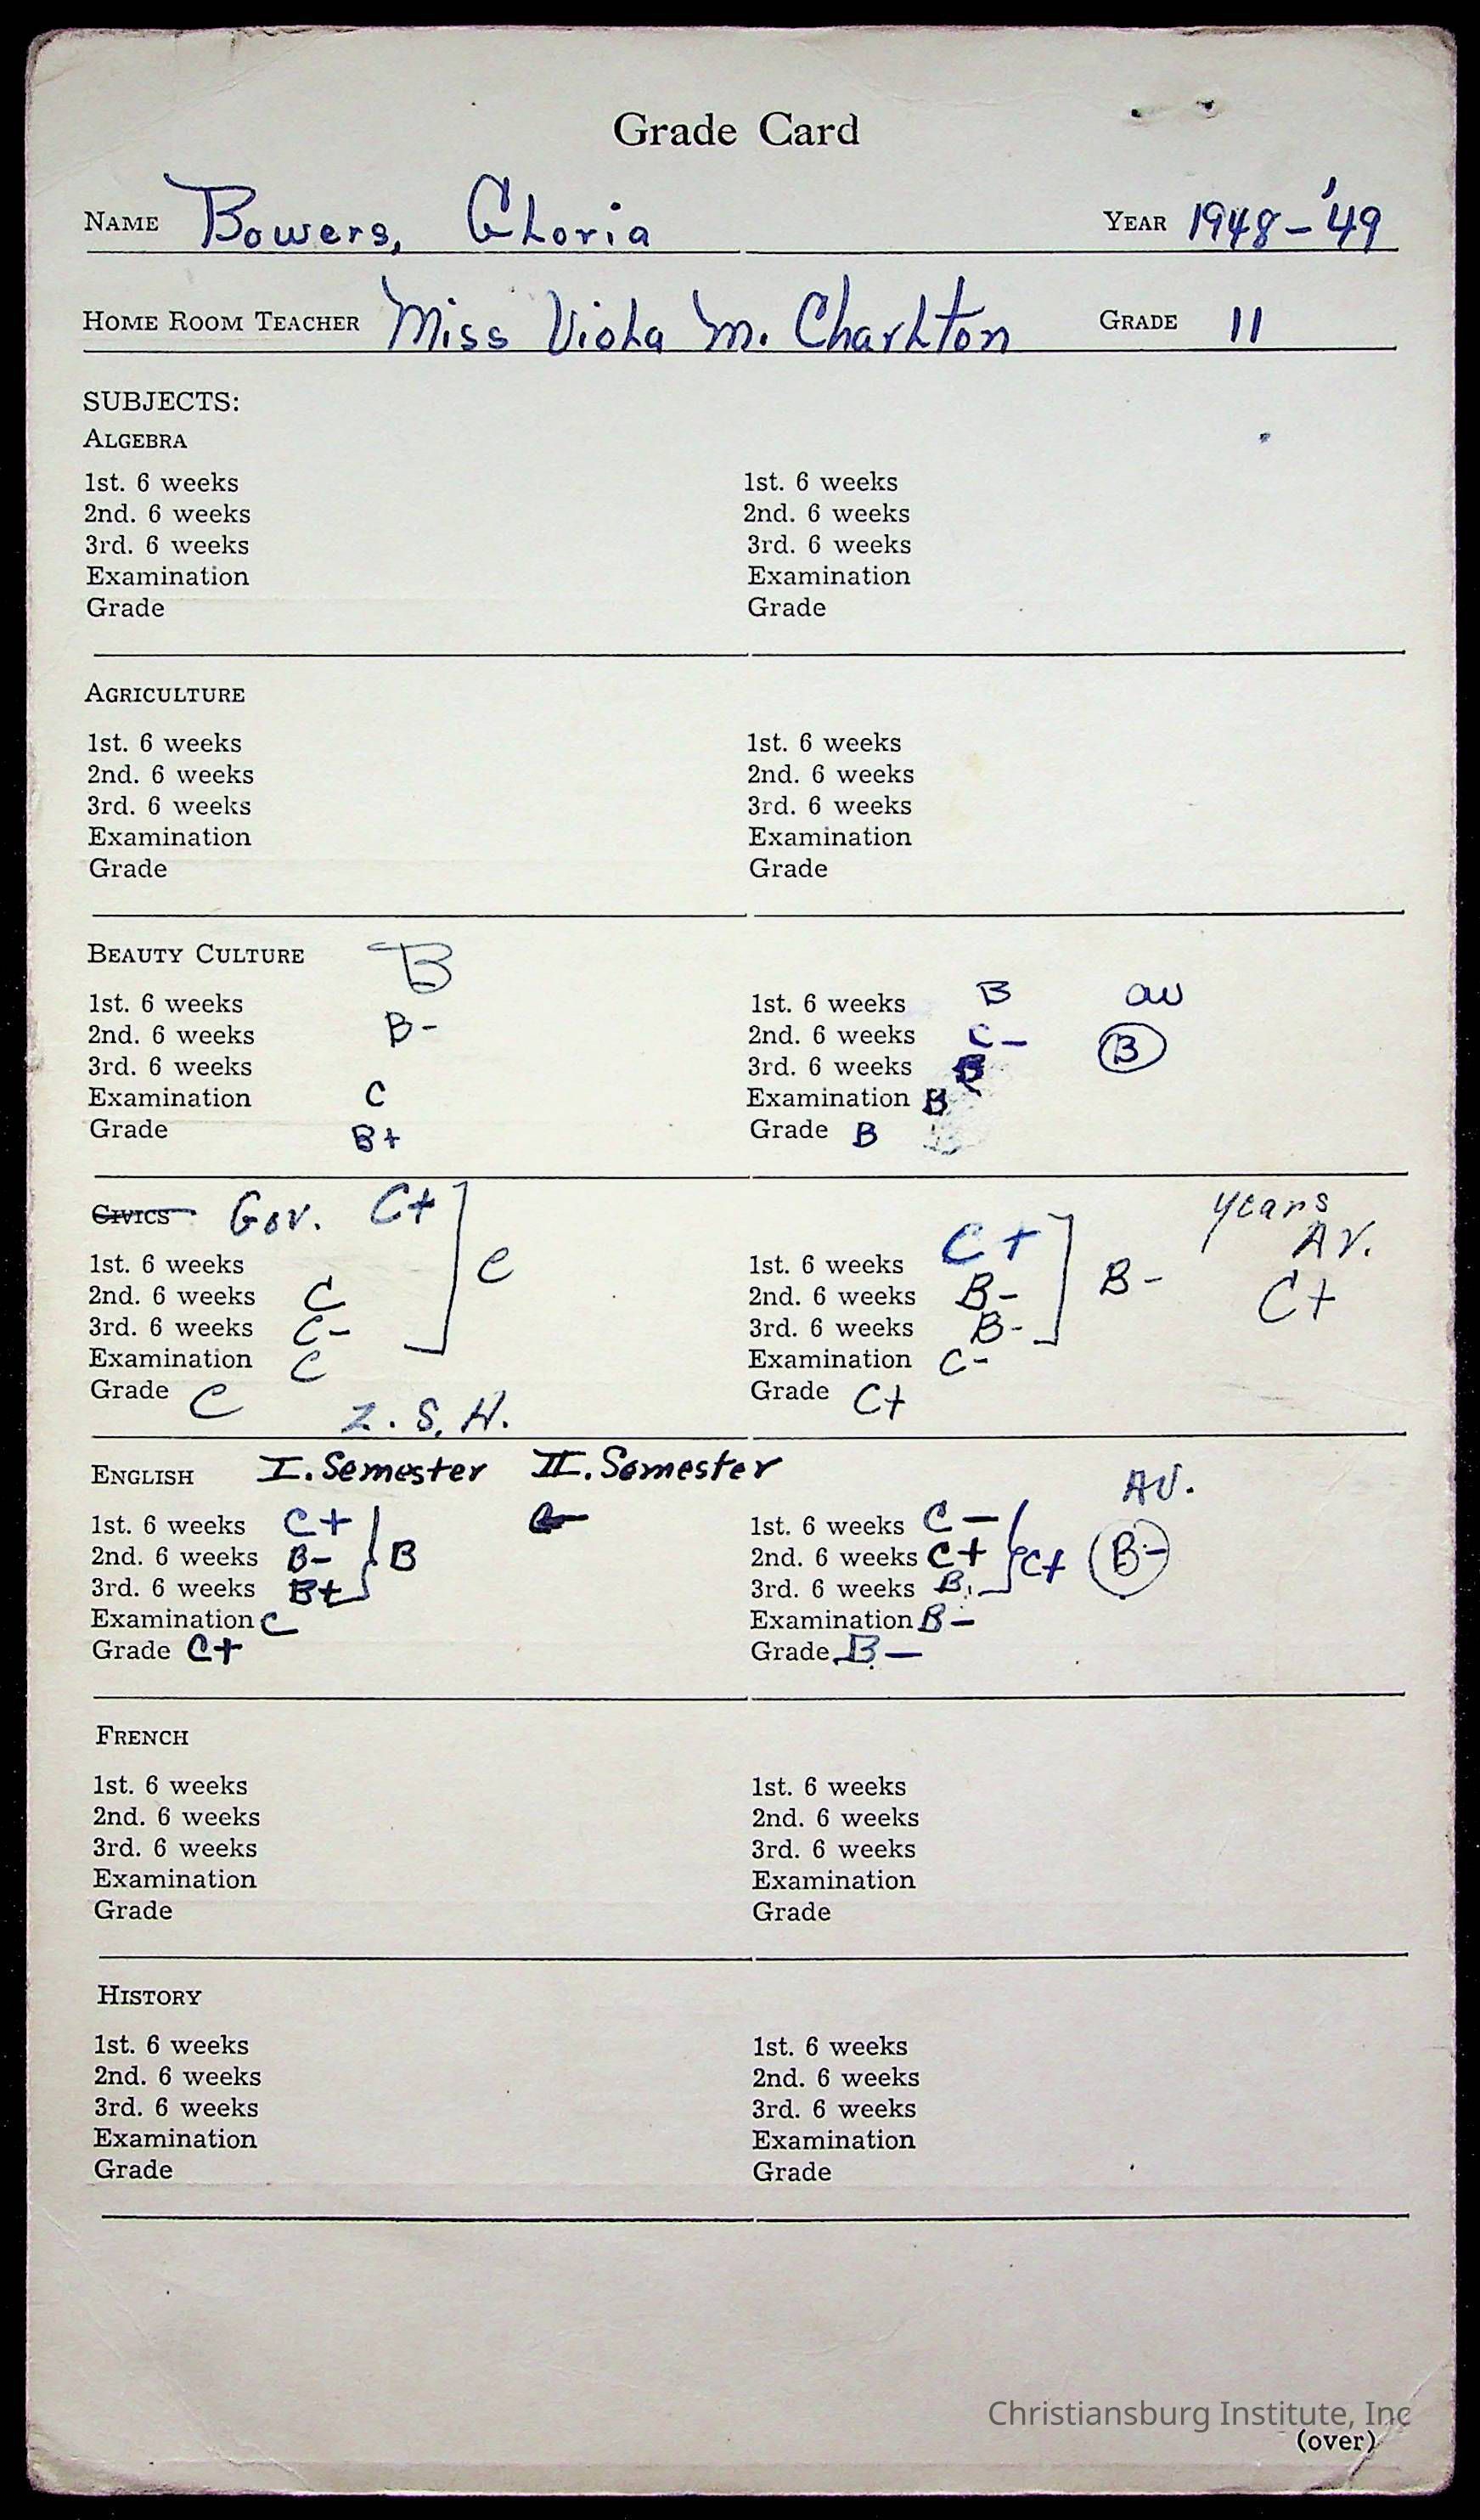 Grade Card
NAME Bowers, Gloria YEAR 1948-'49
HOME ROOM TEACHER Miss Viola M. Charlton GRADE 11
SUBJECTS:
ALGEBRA
1st. 6 weeks 1st. 6 weeks
2nd. 6 weeks 2nd. 6 weeks
3rd. 6 weeks 3rd. 6 weeks
Examination Examination
Grade Grade
AGRICULTURE
1st. 6 weeks 1st. 6 weeks
2nd. 6 weeks 2nd. 6 weeks
3rd. 6 weeks 3rd. 6 weeks
Examination Examination
Grade Grade
BEAUTY CULTURE B
1st. 6 weeks 1st. 6 weeks B av
2nd. 6 weeks B- 2nd. 6 weeks C- B
3rd. 6 weeks 3rd. 6 weeks B
Examination C Examination B
Grade B+ Grade B
CIVICS Gov. C+ years
1st. 6 weeks C 1st. 6 weeks C+ AV.
2nd. 6 weeks C 2nd. 6 weeks B- B- C+
3rd. 6 weeks C- 3rd. 6 weeks B-
Examination C Examination C-
Grade C Grade C+
Z. S. H.
ENGLISH I. Semester II. Semester AV.
1st. 6 weeks C+ 1st. 6 weeks C-
2nd. 6 weeks B- B 2nd. 6 weeks C+ C+ B-
3rd. 6 weeks B+ 3rd. 6 weeks B
Examination C Examination B-
Grade C+ Grade B-
FRENCH
1st. 6 weeks 1st. 6 weeks
2nd. 6 weeks 2nd. 6 weeks
3rd. 6 weeks 3rd. 6 weeks
Examination Examination
Grade Grade
HISTORY
1st. 6 weeks 1st. 6 weeks
2nd. 6 weeks 2nd. 6 weeks
3rd. 6 weeks 3rd. 6 weeks
Examination Examination
Grade Grade
Christiansburg Institute, Inc
(over)